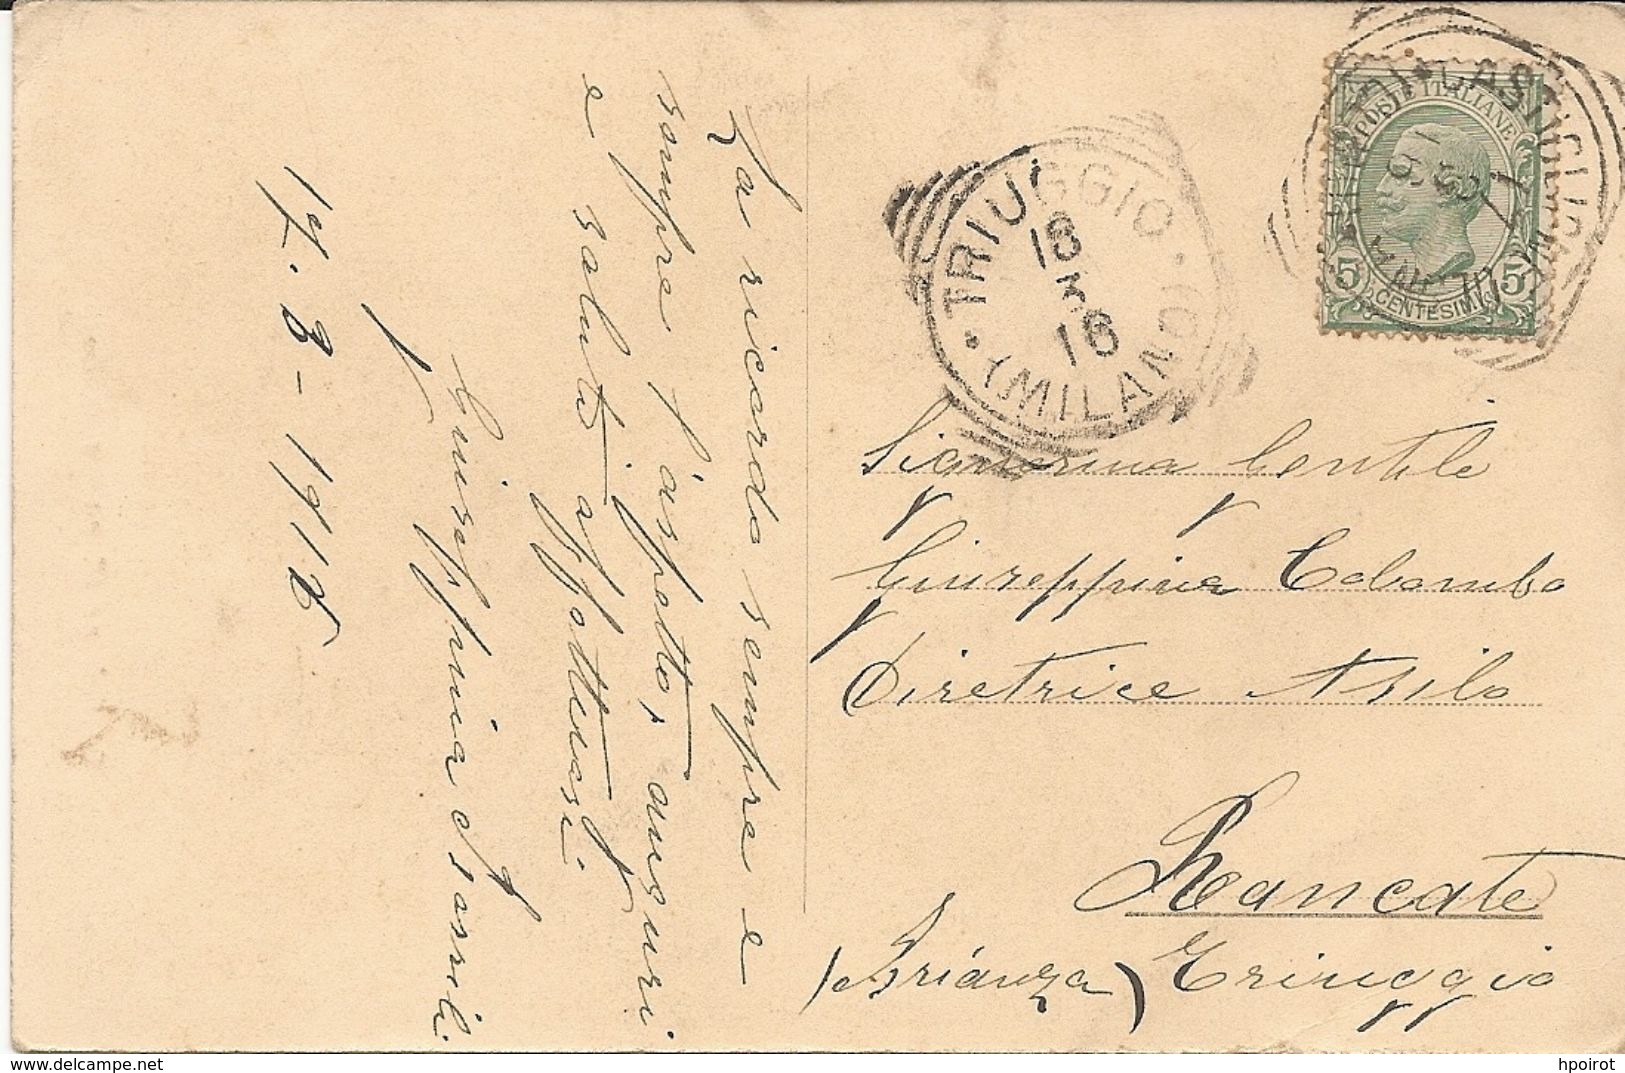 La ricordo sempre e
sempre l'aspetto, auguri
e saluti affettuosi
Giuseppina
17.3-1916
TRIUGGIO
18
3
16
(MILANO)
POSTE ITALIANE
5 5
CENTESIMI
Signorina Gentile
Giuseppina Colombo
Direttrice Asilo
Rancate
(Brianza) Triuggio
delcampe.net
hpoirot